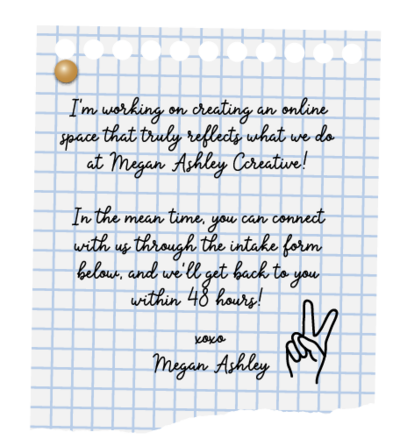 I'm working on creating an online
space that truly reflects what we do
at Megan Ashley Ccreative!
In the mean time, you can connect
with us through the intake form
below, and we'll get back to you
within 48 hours!
xoxo
Megan Ashley